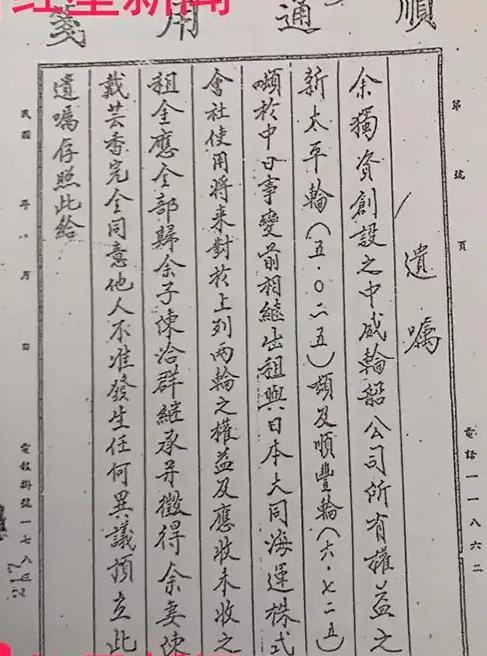 红星新闻
順
通用箋
第 號 頁
電話一一八六二
遺囑
余獨資創設之中威輪船公司所有權益之
新太平輪(五·〇二五)噸及順豐輪(六·七二五)
噸於中日事變前相繼出租與日本大同海運株式
會社使用將来對於上列兩輪之權益及應收未收之
租金應全部歸余子陳洽群繼承并徵得余妻陳
戴芸香完全同意他人不准發生任何異議須立此
遺囑存照此給
民國 年 月 日
電報掛號一七八